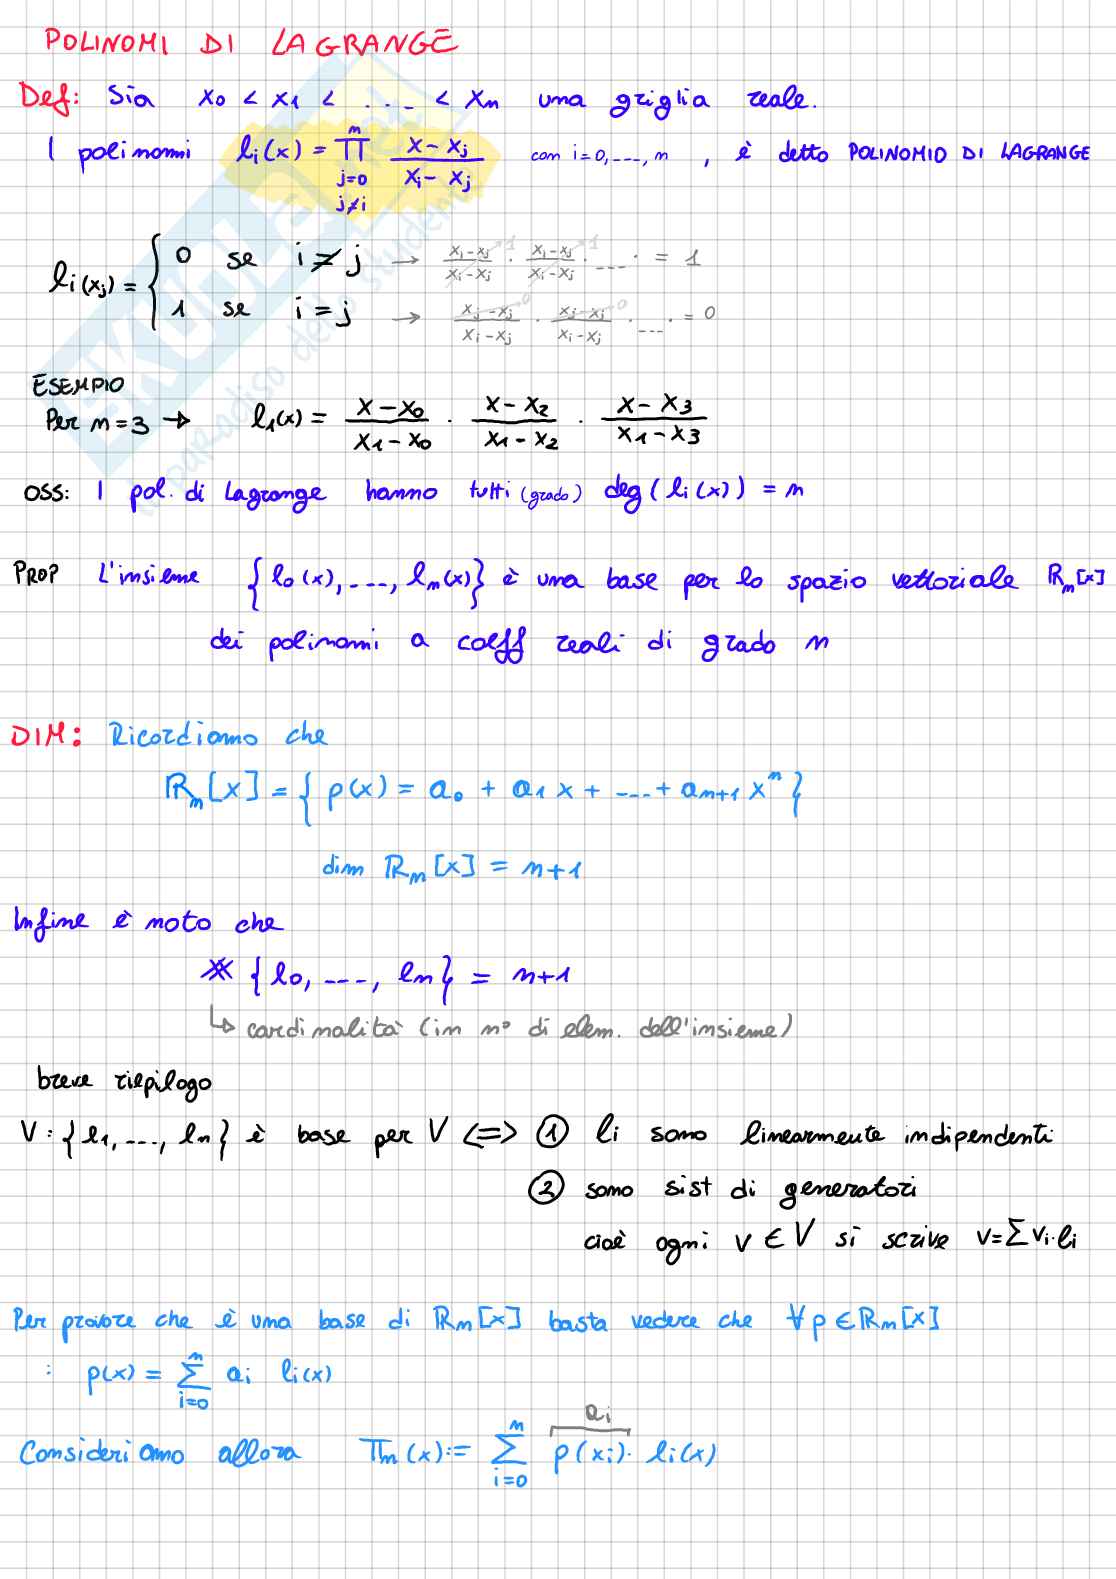 POLINOMI DI LAGRANGE
Def: Sia x₀ < x₁ < .... < xₙ una griglia reale.
I polinomi lᵢ(x) = ∏ⁿ_{j=0, j≠i} (x-xⱼ)/(xᵢ-xⱼ) con i=0,---,n , è detto POLINOMIO DI LAGRANGE
lᵢ(xⱼ) = {
0 se i≠j → (xᵢ-xⱼ)/(xᵢ-xⱼ)^1 · (xᵢ-xⱼ)/(xᵢ-xⱼ)^1 · ---- · = 1
1 se i=j → (xⱼ-xⱼ)^0/(xᵢ-xⱼ) · (xⱼ-xⱼ)^0/(xᵢ-xⱼ) · --- · = 0
ESEMPIO
Per n=3 → l₁(x) = (x-x₀)/(x₁-x₀) · (x-x₂)/(x₁-x₂) · (x-x₃)/(x₁-x₃)
OSS: I pol. di Lagrange hanno tutti (grado) deg(lᵢ(x)) = n
PROP L'insieme {l₀(x), ---, lₙ(x)} è una base per lo spazio vettoriale ℝₙ[x]
dei polinomi a coeff reali di grado n
DIM: Ricordiamo che
ℝₙ[x] = { p(x) = a₀ + a₁x + ---- + aₙ₊₁xⁿ }
dim ℝₙ[x] = n+1
Infine è noto che
# {l₀, ----, lₙ} = n+1
↳ cardinalità (in n° di elem. dell'insieme)
breve riepilogo
V: {l₁, ---, lₙ} è base per V <=> ① lᵢ sono linearmente indipendenti
② sono sist di generatori
cioè ogni v ∈ V si scrive v=∑vᵢ·lᵢ
Per provare che è una base di ℝₙ[x] basta vedere che ∀p∈ℝₙ[x]
: p(x) = ∑ⁿ_{i=0} aᵢ lᵢ(x)
aᵢ
Consideriamo allora Πₙ(x) := ∑ⁿ_{i=0} p(xᵢ)· lᵢ(x)
SKUOLA.net
il paradiso dello studente